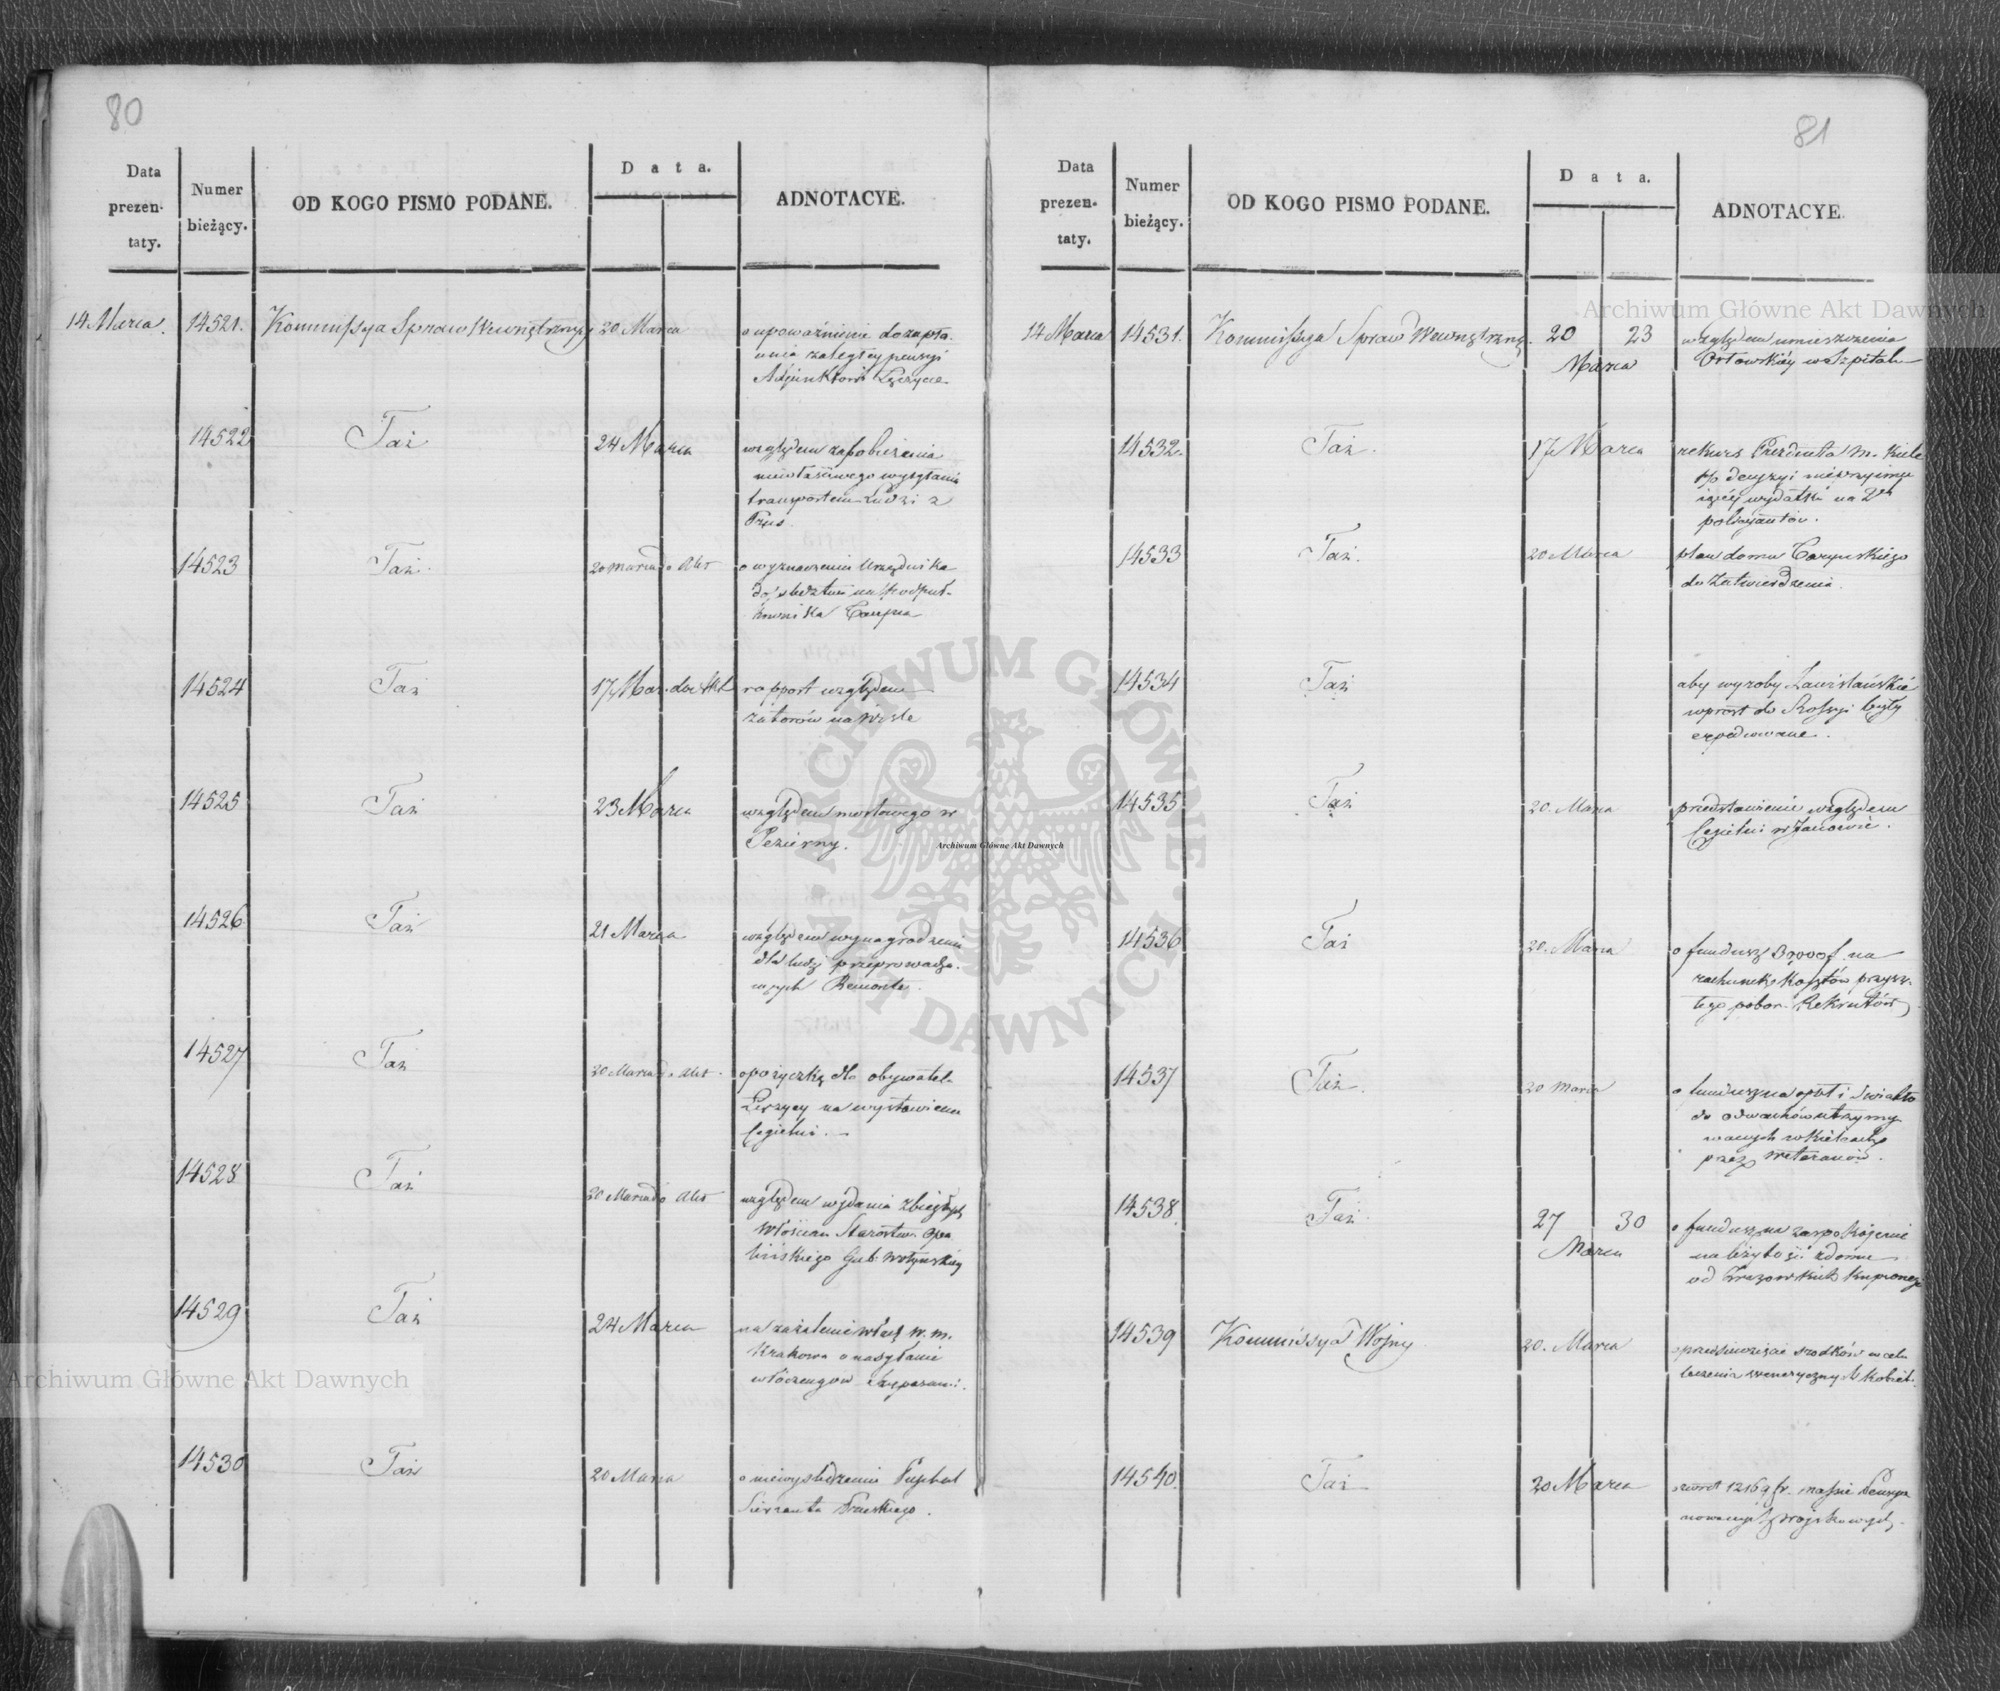 80
Data
prezen-
taty.
Numer
bieżący.
OD KOGO PISMO PODANE.
Data.
ADNOTACYE.
14 Marca. 14521. Kommissya Spraw Wewnętrzny 20 Marca
o upoważnienie do zapła-
nia zaległey pensyi
Adjunktowi Łęczyce
14522 Taż 24 Marca
względem zapobieżenia
niewłaściwego wysyłania
transportem Ludzi z
Prus.
14523 Taż. 20 Marca do Akt
o wyznaczenie Urzędnika
do śledztwa na Podpuł-
kownika
14524 Taż 17 Mar. do Akt
rapport względem
zatorów na Wiśle
14525 Taż 23 Marca
względem mostowego w
14526 Taż 21 Marca
względem wynagrodzenia
dla ludzi przeprowadza-
iących Remonte.
14527 Taż 20 Marca do Akt.
o pożyczkę dla obywatela
na wystawienie
Cegielni.
14528 Taż 20 Marca do Akt
względem wydania zbiegłych
Włościan Starostwa Opa
lińskiego Gub. Wołyńskiey
14529 Taż 24 Marca
na zażalenie Władz w. m.
Krakowa o nasyłanie
włóczengow
14530 Taż 20 Marca
o niewyśledzeniu
Sierżanta
81
Data
prezen-
taty.
Numer
bieżący.
OD KOGO PISMO PODANE.
Data.
ADNOTACYE.
14 Marca 14531. Kommissya Spraw Wewnętrzny. 20 23
Marca
względem umieszczenia
Orłowskiéy w Szpitalu
14532. Taż. 17 Marca
rekurs Prezydenta m. Kielc
p/o decyzyi nieprzyimu
iącéy wydatku na 2ch
policyantów.
14533 Taż. 20 Marca
plan domu
do Zatwierdzenia.
14534 Taż
aby wyroby
wprost do Rossyi były
expediowane.
14535 Taż 20. Marca
przedstawienie względem
Cegielni w Janowie.
14536 Taż 20. Marca
o fundusz na
rachunek kosztów przysz-
łego pobor. Rekrutów
14537 Taż. 20 Marca
o fundusz na opał i Światło
do odwachów utrzymy
wanych w Kielcach
przez Weteranów.
14538. Taż. 27 30
Marca
o fundusz na zaspokojenie
należytości z domu
od kupionego
14539 Kommissya Wojny 20. Marca
o przedsiewzięcie srodków w celu
leczenia wenerycznych kobiet.
14540. Taż 20 Marca
o zwrot massie Pensyo
nowanych Woyskowych.
Archiwum Główne Akt Dawnych
ARCHIWUM GŁÓWNE AKT DAWNYCH
Archiwum Główne Akt Dawnych
Archiwum Główne Akt Dawnych